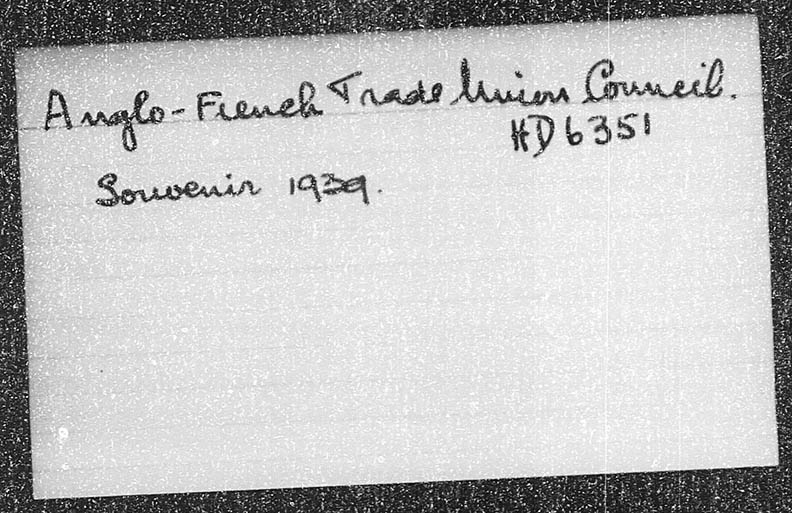 Anglo-French Trade Union Council.
HD6351
Souvenir 1939.